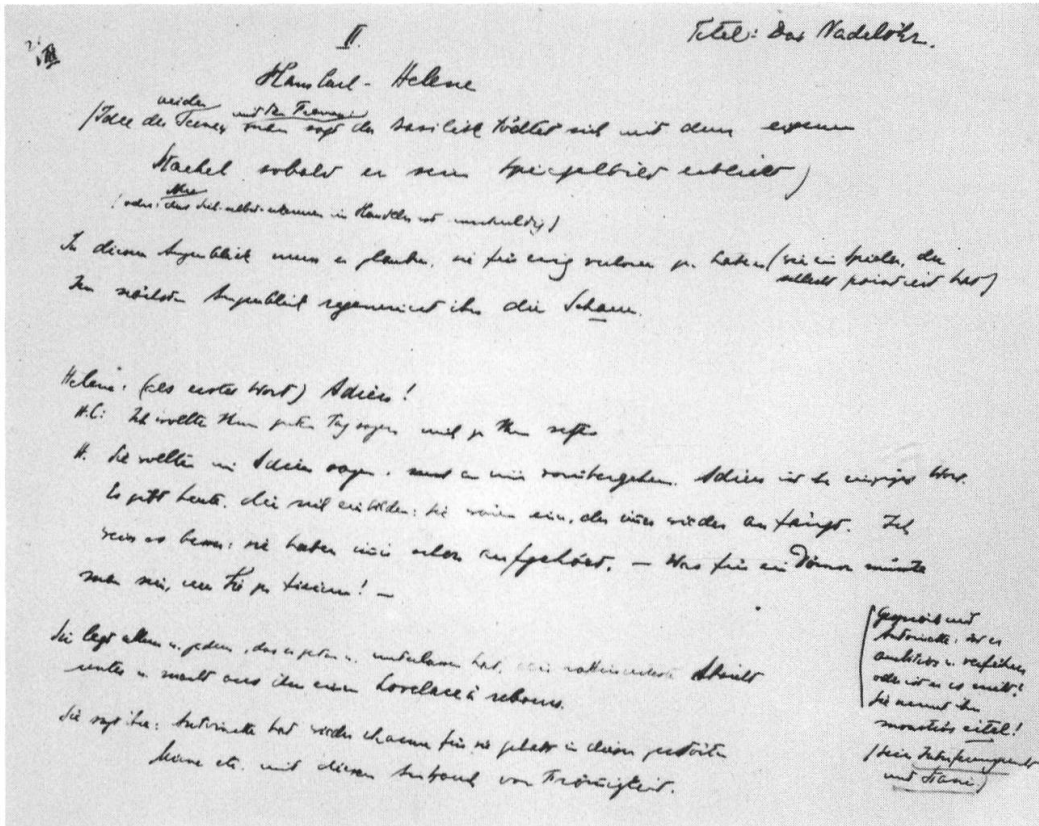 II.
Titel: Das Nadelöhr.
III
Hans Carl - Helene
beiden mit den Frauen
(Idee der Scenen man sagt der Basilisk tödtet sich mit dem eigenen
Stachel sobald er sein Spiegelbild erblickt)
(oder: das sich-selbst-erkennen im Handeln ist
In diesem Augenblick muss er glauben, sie für ewig verloren zu haben (wie ein Spieler, der
selbst pointiert hat)
Im nächsten Augenblick regeneriert ihn die Scham.
Helene: (als erstes Wort) Adieu!
H.C: Ich wollte Ihnen guten Tag sagen und
H. Sie wollten mir Adieu sagen, und an mir vorübergehen. Adieu ist Ihr einziges Wort.
Es gibt Leute, die sich einbilden: Sie wären ein, der immer wieder anfängt. Ich
weiss es besser: Sie haben immer schon aufgehört. — Was für ein Dämon müsste
man sein, um Sie zu fixieren! —
Sie legt allem u. jedem, das er getan u. unterlassen hat, eine raffinierteste Absicht
unter u. macht aus ihm einen Lovelace à rebours.
Sie sagt ihm: Antoinette hat wieder Chancen für Sie gehabt in dieser
Miene etc. mit diesem von Frömmigkeit.
Gegenwart und
Antoinette: ist es
ambitiös zu verführen
oder ist er es nicht?
Sie nennt ihn
monströs eitel!
(sein
und Stani.)